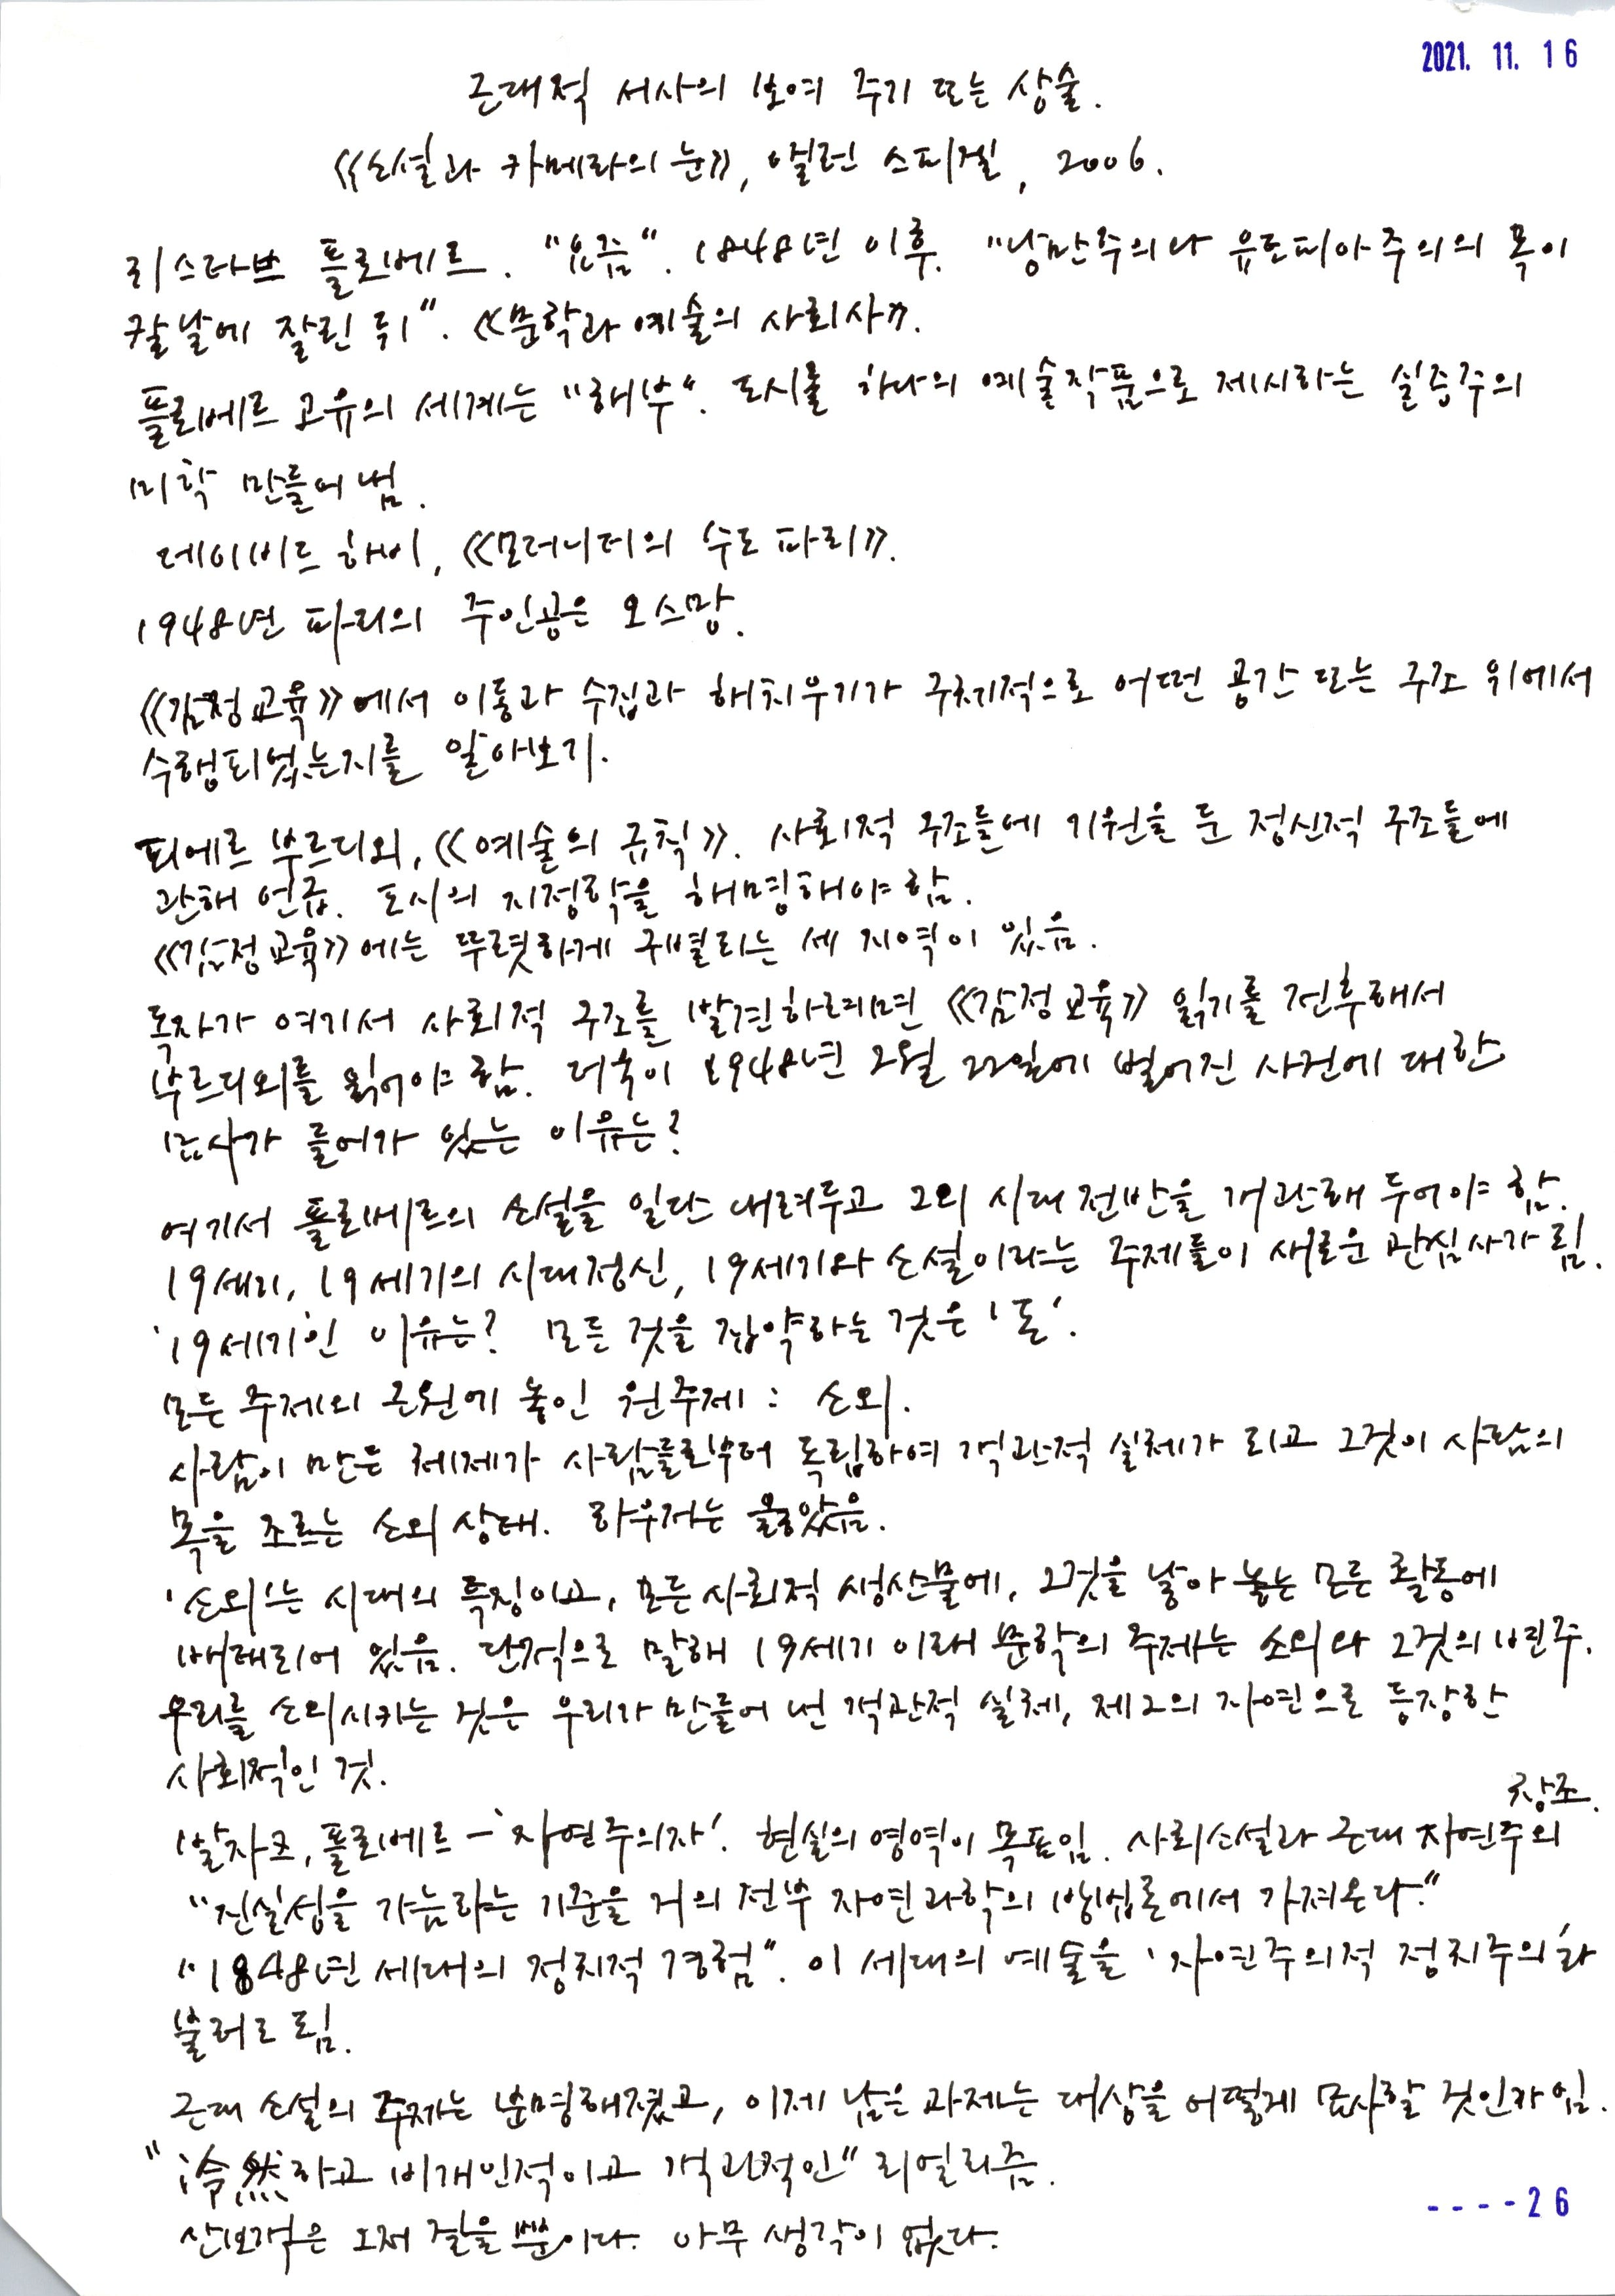 2021. 11. 16
근대적 서사의 보여 주기 또는 상술.
《소설과 카메라의 눈》, 앨런 스피겔, 2006.
귀스타브 플로베르. "요즘". 1848년 이후. "낭만주의나 유토피아주의의 목이
칼날에 잘린 뒤". 《문학과 예술의 사회사》.
플로베르 고유의 세계는 "해부". 도시를 하나의 예술작품으로 제시하는 실증주의
미학 만들어 냄.
데이비드 하비, 《모더니티의 수도 파리》.
1948년 파리의 주인공은 오스망.
《감정 교육》에서 이동과 수집과 해치우기가 구체적으로 어떤 공간 또는 구조 위에서
수행되었는지를 알아보기.
피에르 부르디외, 《예술의 규칙》. 사회적 구조들에 기원을 둔 정신적 구조들에
관해 언급. 도시의 지정학을 해명해야 함.
《감정 교육》에는 뚜렷하게 구별되는 세 지역이 있음.
독자가 여기서 사회적 구조를 발견하려면 《감정 교육》 읽기를 전후해서
부르디외를 읽어야 함. 더욱이 1948년 2월 22일에 벌어진 사건에 대한
묘사가 들어가 있는 이유는?
여기서 플로베르의 소설을 일단 내려두고 그의 시대 전반을 개관해 두어야 함.
19세기, 19세기의 시대정신, 19세기와 소설이라는 주제들이 새로운 관심사가 됨.
'19세기'인 이유는? 모든 것을 집약하는 것은 '돈'.
모든 주제의 근원에 놓인 원주제 : 소외.
사람이 만든 체제가 사람들로부터 독립하여 객관적 실체가 되고 그것이 사람의
목을 조르는 소외 상태. 하우저는 옳았음.
'소외'는 시대의 특징이고, 모든 사회적 생산물에, 그것을 낳아 놓는 모든 활동에
배태되어 있음. 단적으로 말해 19세기 이래 문학의 주제는 소외와 그것의 변주.
우리를 소외시키는 것은 우리가 만들어 낸 객관적 실체, 제2의 자연으로 등장한
사회적인 것.
창조.
발자크, 플로베르 – '자연주의자'. 현실의 영역이 목표임. 사회소설과 근대 자연주의
"진실성을 가늠하는 기준을 거의 전부 자연과학의 방법론에서 가져온다."
"1848년 세대의 정치적 경험". 이 세대의 예술을 '자연주의적 정치주의'라
불러도 됨.
근대 소설의 주제는 분명해졌고, 이제 남은 과제는 대상을 어떻게 묘사할 것인가임.
"冷然하고 비개인적이고 객관적인" 리얼리즘.
산보객은 오직 걸을 뿐이다. 아무 생각이 없다.
----26